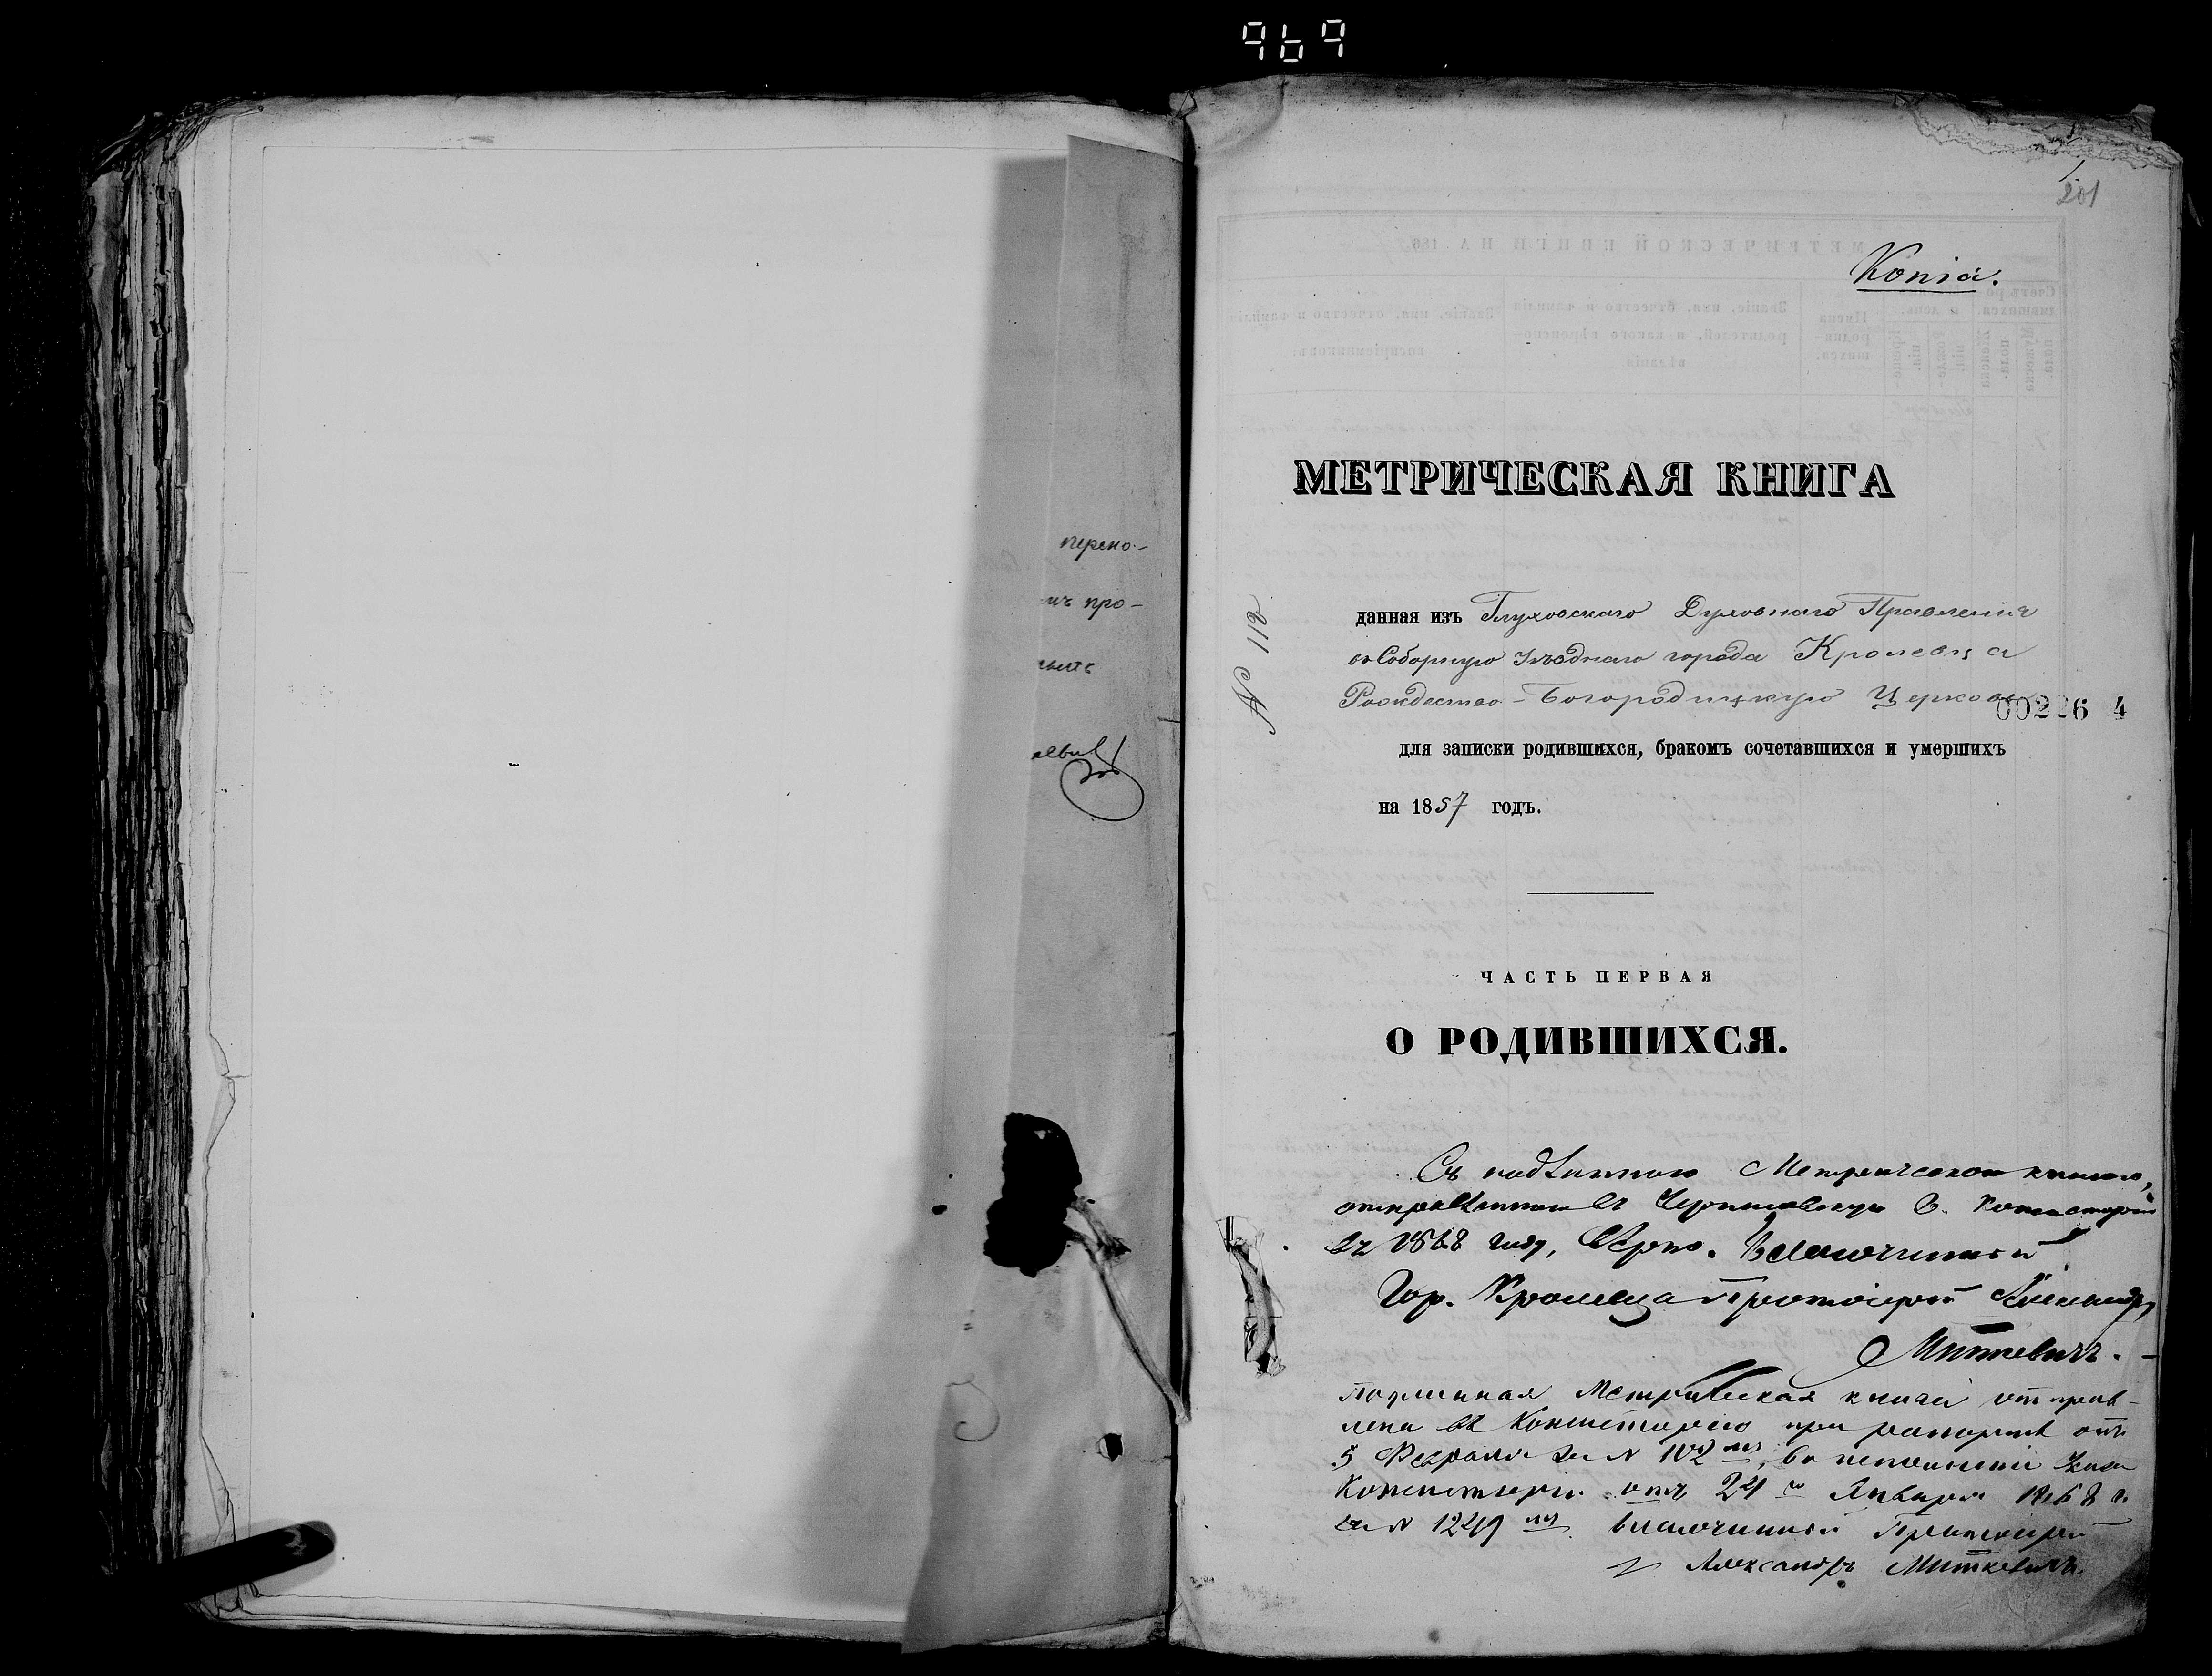 969
перено-
про-
201
Копія.
МЕТРИЧЕСКАЯ КНИГА
№ 112
данная изъ Глуховскаго Духовнаго Правленія
въ Соборную Уѣзднаго города Кролевца
Рождество-Богородицкую Церковь
для записки родившихся, бракомъ сочетавшихся и умершихъ
на 1857 годъ.
ЧАСТЬ ПЕРВАЯ
О РОДИВШИХСЯ.
Съ подлинною Метрическою книгою,
отправленною въ Черниговскую Д. Консисторію
въ 1868 году, вѣрно. Благочинный
Гор. Кролевца Протоіерей Александръ
Миткевичъ.
Подлинная Метрическая книга отправ-
лена въ Консисторію при рапортѣ отъ
5 Февраля за № 102, во исполненіе Указа
Консисторіи отъ 24 Января 1868 г.
за № 1249. Благочинный Протоіерей
Александръ Миткевичъ.